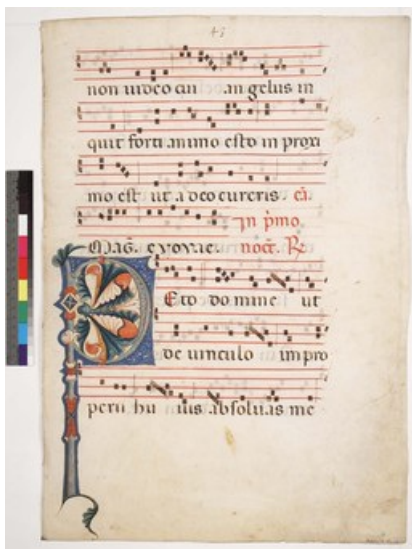 non video cui angelus in
quit forti animo esto in proxi
mo est ut a deo cureris. ca.
In p̄mo
Mag. evovae. noct. R̃
Eto domine ut
de vinculo impro
perii hu ius absolvas me